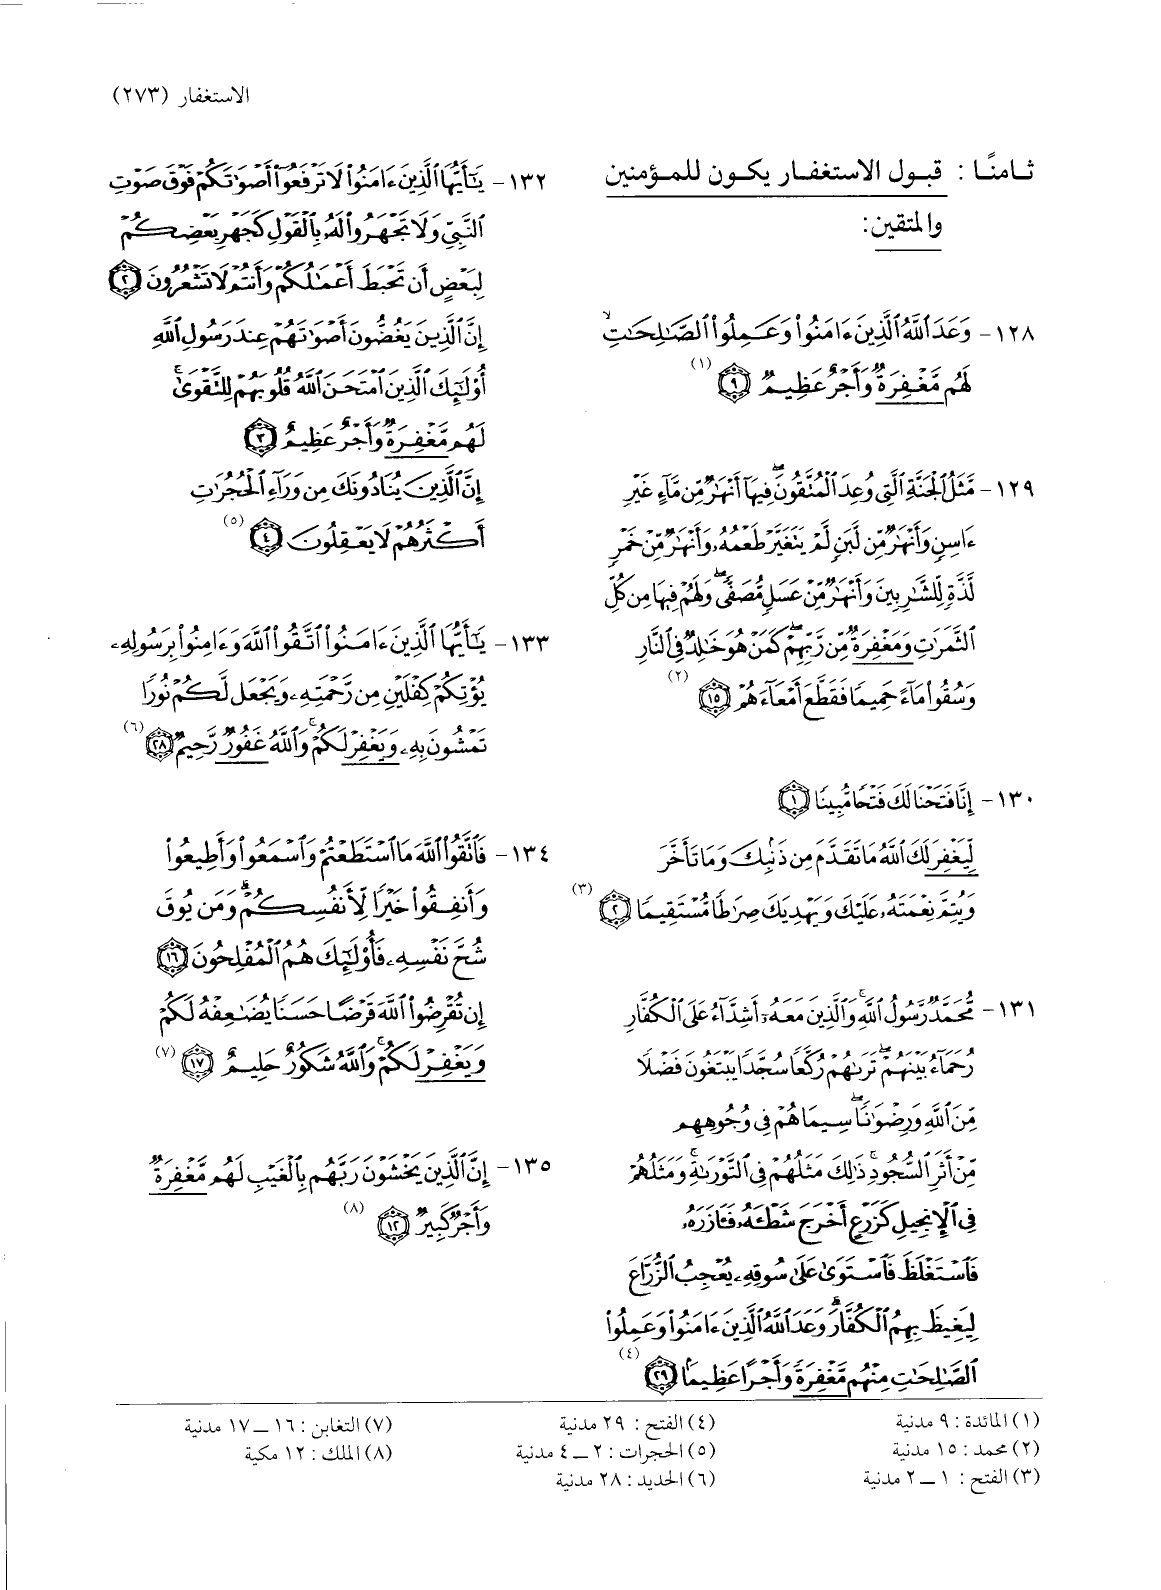 الاستغفار (٢٧٣)
ثامنًا : قبول الاستغفار يكون للمؤمنين
والمتقين:
١٢٨- وَعَدَ ٱللَّهُ ٱلَّذِينَ ءَامَنُوا۟ وَعَمِلُوا۟ ٱلصَّـٰلِحَـٰتِ ۙ
لَهُم مَّغْفِرَةٌ وَأَجْرٌ عَظِيمٌ ۝٩ (١)
١٢٩- مَّثَلُ ٱلْجَنَّةِ ٱلَّتِى وُعِدَ ٱلْمُتَّقُونَ ۖ فِيهَآ أَنْهَـٰرٌ مِّن مَّآءٍ غَيْرِ
ءَاسِنٍ وَأَنْهَـٰرٌ مِّن لَّبَنٍ لَّمْ يَتَغَيَّرْ طَعْمُهُۥ وَأَنْهَـٰرٌ مِّنْ خَمْرٍ
لَّذَّةٍ لِّلشَّـٰرِبِينَ وَأَنْهَـٰرٌ مِّنْ عَسَلٍ مُّصَفًّى ۖ وَلَهُمْ فِيهَا مِن كُلِّ
ٱلثَّمَرَٰتِ وَمَغْفِرَةٌ مِّن رَّبِّهِمْ ۖ كَمَنْ هُوَ خَـٰلِدٌ فِى ٱلنَّارِ
وَسُقُوا۟ مَآءً حَمِيمًا فَقَطَّعَ أَمْعَآءَهُمْ ۝١٥ (٢)
١٣٠- إِنَّا فَتَحْنَا لَكَ فَتْحًا مُّبِينًا ۝١
لِّيَغْفِرَ لَكَ ٱللَّهُ مَا تَقَدَّمَ مِن ذَنۢبِكَ وَمَا تَأَخَّرَ
وَيُتِمَّ نِعْمَتَهُۥ عَلَيْكَ وَيَهْدِيَكَ صِرَٰطًا مُّسْتَقِيمًا ۝٢ (٣)
١٣١- مُّحَمَّدٌ رَّسُولُ ٱللَّهِ ۚ وَٱلَّذِينَ مَعَهُۥٓ أَشِدَّآءُ عَلَى ٱلْكُفَّارِ
رُحَمَآءُ بَيْنَهُمْ ۖ تَرَىٰهُمْ رُكَّعًا سُجَّدًا يَبْتَغُونَ فَضْلًا
مِّنَ ٱللَّهِ وَرِضْوَٰنًا ۖ سِيمَاهُمْ فِى وُجُوهِهِم
مِّنْ أَثَرِ ٱلسُّجُودِ ۚ ذَٰلِكَ مَثَلُهُمْ فِى ٱلتَّوْرَىٰةِ ۚ وَمَثَلُهُمْ
فِى ٱلْإِنجِيلِ كَزَرْعٍ أَخْرَجَ شَطْـَٔهُۥ فَـَٔازَرَهُۥ
فَٱسْتَغْلَظَ فَٱسْتَوَىٰ عَلَىٰ سُوقِهِۦ يُعْجِبُ ٱلزُّرَّاعَ
لِيَغِيظَ بِهِمُ ٱلْكُفَّارَ ۗ وَعَدَ ٱللَّهُ ٱلَّذِينَ ءَامَنُوا۟ وَعَمِلُوا۟
ٱلصَّـٰلِحَـٰتِ مِنْهُم مَّغْفِرَةً وَأَجْرًا عَظِيمًۢا ۝٢٩ (٤)
١٣٢- يَـٰٓأَيُّهَا ٱلَّذِينَ ءَامَنُوا۟ لَا تَرْفَعُوٓا۟ أَصْوَٰتَكُمْ فَوْقَ صَوْتِ
ٱلنَّبِىِّ وَلَا تَجْهَرُوا۟ لَهُۥ بِٱلْقَوْلِ كَجَهْرِ بَعْضِكُمْ
لِبَعْضٍ أَن تَحْبَطَ أَعْمَـٰلُكُمْ وَأَنتُمْ لَا تَشْعُرُونَ ۝٢
إِنَّ ٱلَّذِينَ يَغُضُّونَ أَصْوَٰتَهُمْ عِندَ رَسُولِ ٱللَّهِ
أُو۟لَـٰٓئِكَ ٱلَّذِينَ ٱمْتَحَنَ ٱللَّهُ قُلُوبَهُمْ لِلتَّقْوَىٰ ۚ
لَهُم مَّغْفِرَةٌ وَأَجْرٌ عَظِيمٌ ۝٣
إِنَّ ٱلَّذِينَ يُنَادُونَكَ مِن وَرَآءِ ٱلْحُجُرَٰتِ
أَكْثَرُهُمْ لَا يَعْقِلُونَ ۝٤ (٥)
١٣٣- يَـٰٓأَيُّهَا ٱلَّذِينَ ءَامَنُوا۟ ٱتَّقُوا۟ ٱللَّهَ وَءَامِنُوا۟ بِرَسُولِهِۦ
يُؤْتِكُمْ كِفْلَيْنِ مِن رَّحْمَتِهِۦ وَيَجْعَل لَّكُمْ نُورًا
تَمْشُونَ بِهِۦ وَيَغْفِرْ لَكُمْ ۚ وَٱللَّهُ غَفُورٌ رَّحِيمٌ ۝٢٨ (٦)
١٣٤- فَٱتَّقُوا۟ ٱللَّهَ مَا ٱسْتَطَعْتُمْ وَٱسْمَعُوا۟ وَأَطِيعُوا۟
وَأَنفِقُوا۟ خَيْرًا لِّأَنفُسِكُمْ ۗ وَمَن يُوقَ
شُحَّ نَفْسِهِۦ فَأُو۟لَـٰٓئِكَ هُمُ ٱلْمُفْلِحُونَ ۝١٦
إِن تُقْرِضُوا۟ ٱللَّهَ قَرْضًا حَسَنًا يُضَـٰعِفْهُ لَكُمْ
وَيَغْفِرْ لَكُمْ ۚ وَٱللَّهُ شَكُورٌ حَلِيمٌ ۝١٧ (٧)
١٣٥- إِنَّ ٱلَّذِينَ يَخْشَوْنَ رَبَّهُم بِٱلْغَيْبِ لَهُم مَّغْفِرَةٌ
وَأَجْرٌ كَبِيرٌ ۝١٢ (٨)
(١) المائدة : ٩ مدنية
(٢) محمد : ١٥ مدنية
(٣) الفتح : ١ ــ ٢ مدنية
(٤) الفتح : ٢٩ مدنية
(٥) الحجرات : ٢ ــ ٤ مدنية
(٦) الحديد : ٢٨ مدنية
(٧) التغابن : ١٦ ــ ١٧ مدنية
(٨) الملك : ١٢ مكية